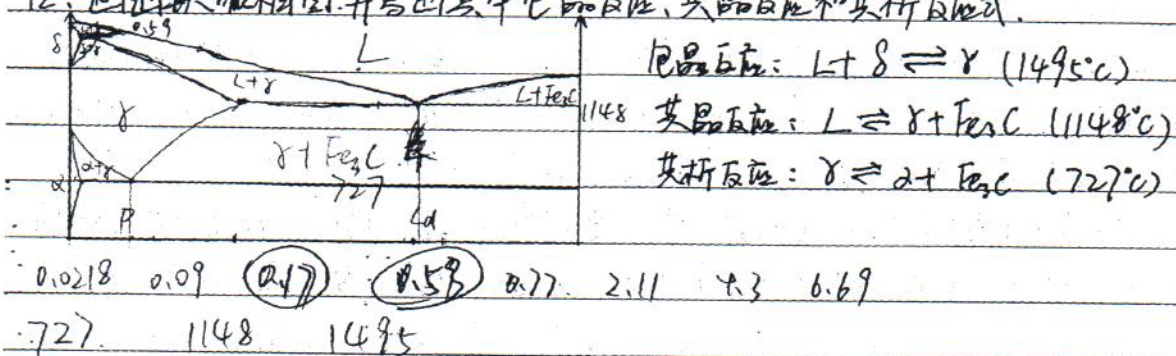 12. 并写出其中包晶反应、共晶反应和共析反应式.
δ 0.59 L
L+γ L+Fe₃C 1148
γ
α+γ γ+Fe₃C
α 727
P Ld
包晶反应: L+δ⇌γ (1495°C)
共晶反应: L⇌γ+Fe₃C (1148°C)
共析反应: γ⇌α+Fe₃C (727°C)
0.0218 0.09 0.17 0.53 0.77 2.11 4.3 6.69
727 1148 1495